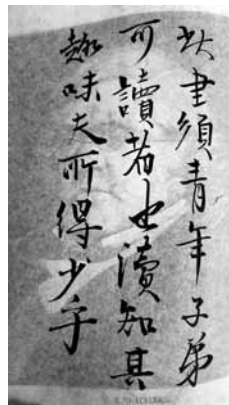 此書須青年子弟
可讀者也讀知其
趣味夫所得少乎